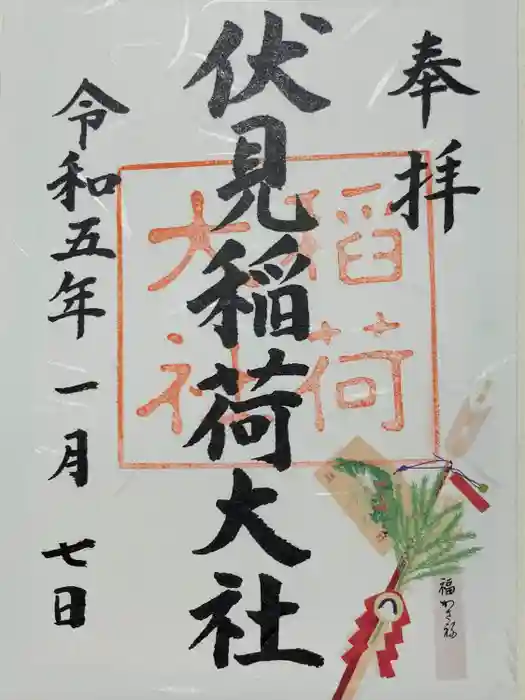 奉拝
伏見稲荷大社
稲荷
大社
令和五年一月七日